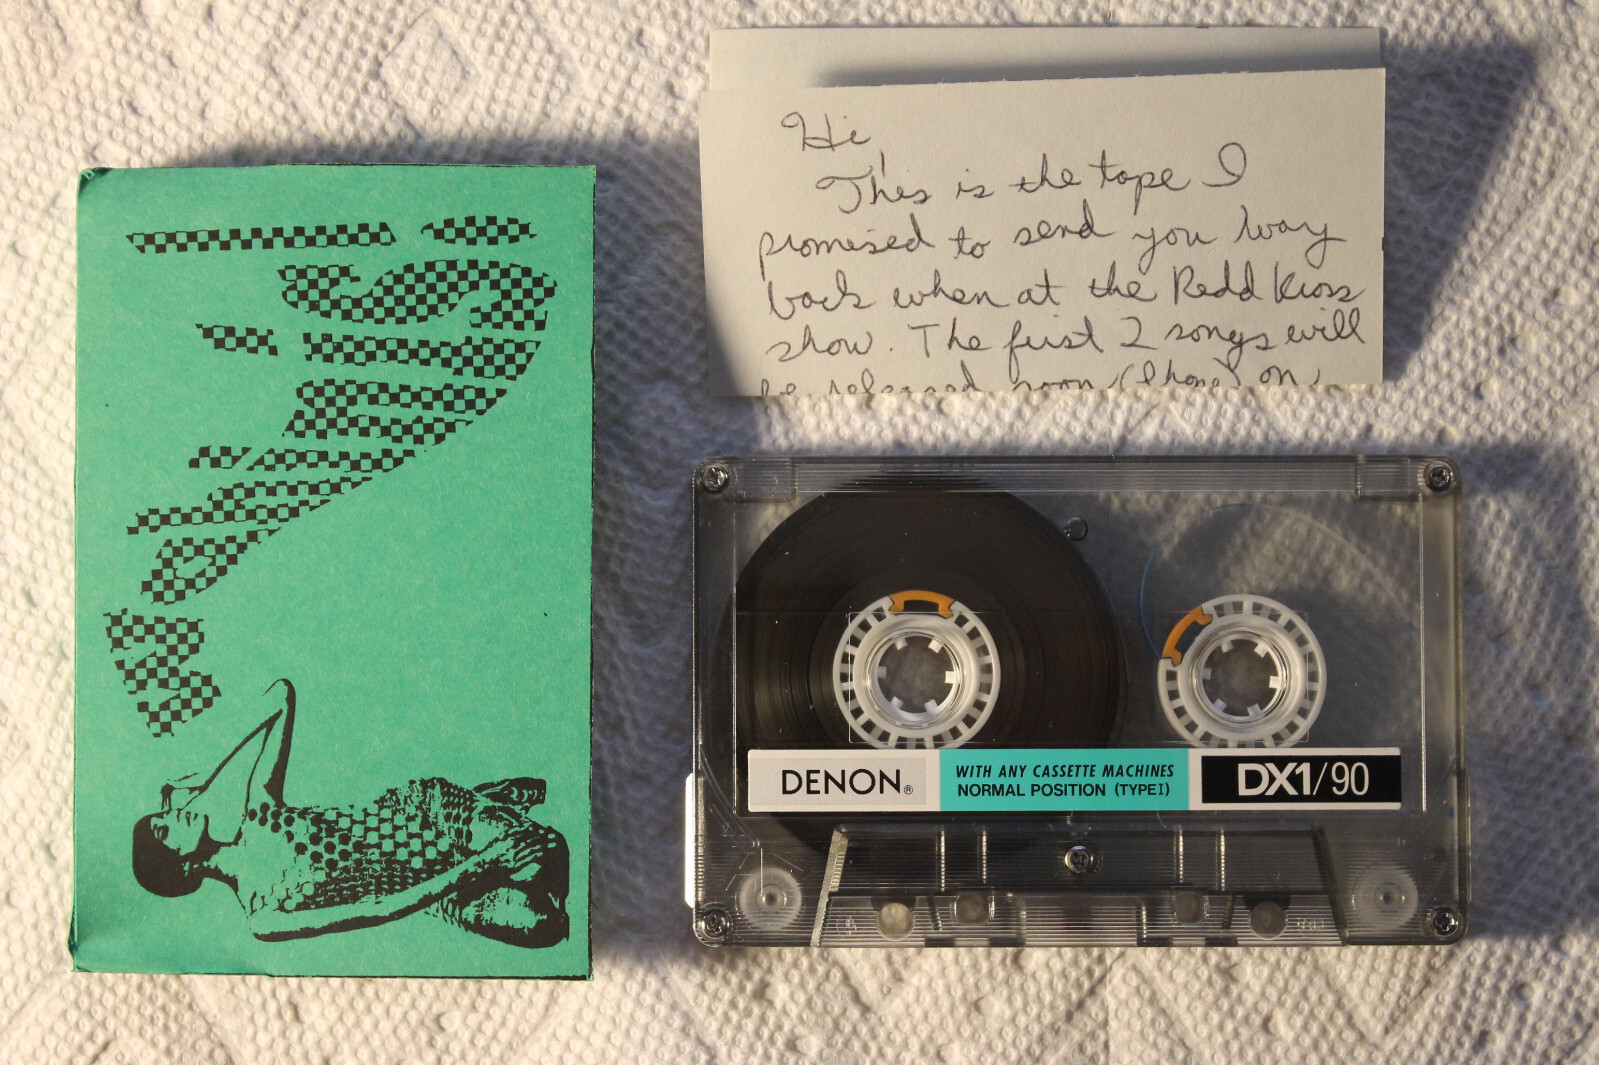 Hi,
This is the tape I
promised to send you way
back when at the Redd Kross
show. The first 2 songs will
be released soon (I hope) on
DENON®
WITH ANY CASSETTE MACHINES
NORMAL POSITION (TYPE I)
DX1/90